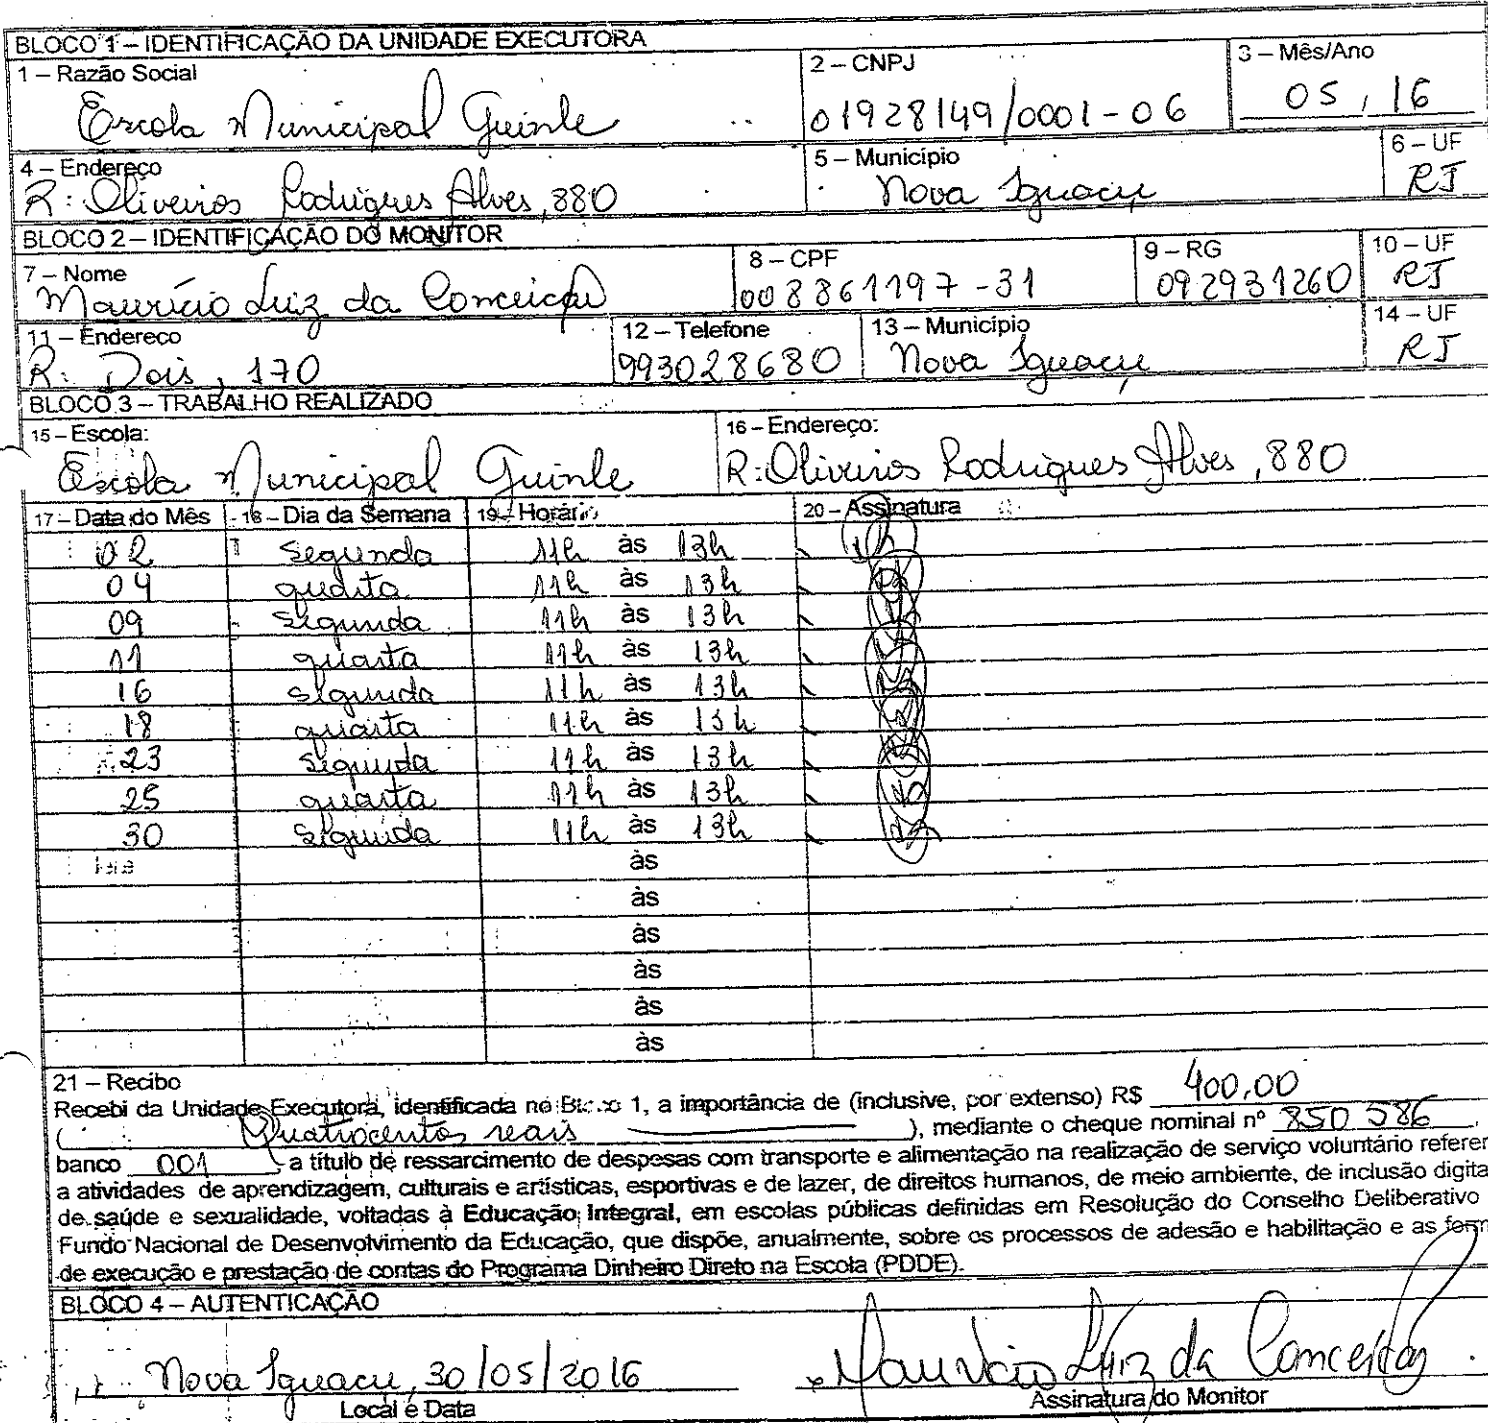 BLOCO 1 – IDENTIFICAÇÃO DA UNIDADE EXECUTORA
1 – Razão Social 2 – CNPJ 3 – Mês/Ano
Escola Municipal Guinle 01928149/0001-06 05, 16
4 – Endereço 5 – Município 6 – UF
R: Oliveiros Rodrigues Alves, 880 Nova Iguaçu RJ
BLOCO 2 – IDENTIFICAÇÃO DO MONITOR
7 – Nome 8 – CPF 9 – RG 10 – UF
Maurício Luiz da Conceição 008861197-31 092931260 RJ
11 – Endereco 12 – Telefone 13 – Município 14 – UF
R: Dois, 170 993028680 Nova Iguaçu RJ
BLOCO 3 – TRABALHO REALIZADO
15 – Escola: 16 – Endereço:
Escola Municipal Guinle R: Oliveiros Rodrigues Alves, 880
17 – Data do Mês 18 – Dia da Semana 19 – Horário 20 – Assinatura
02 Segunda 11h às 13h
04 quarta 11h às 13h
09 Segunda 11h às 13h
11 quarta 11h às 13h
16 segunda 11h às 13h
18 quarta 11h às 13h
23 Segunda 11h às 13h
25 quarta 11h às 13h
30 Segunda 11h às 13h
às
às
às
às
às
às
21 – Recibo
Recebi da Unidade Executora, identificada no Bloco 1, a importância de (inclusive, por extenso) R$ 400,00
( Quatrocentos reais ), mediante o cheque nominal nº 850586,
banco 001 a título de ressarcimento de despesas com transporte e alimentação na realização de serviço voluntário referen
a atividades de aprendizagem, culturais e artísticas, esportivas e de lazer, de direitos humanos, de meio ambiente, de inclusão digita
de saúde e sexualidade, voltadas à Educação Integral, em escolas públicas definidas em Resolução do Conselho Deliberativo
Fundo Nacional de Desenvolvimento da Educação, que dispõe, anualmente, sobre os processos de adesão e habilitação e as form
de execução e prestação de contas do Programa Dinheiro Direto na Escola (PDDE).
BLOCO 4 – AUTENTICAÇÃO
Nova Iguaçu, 30/05/2016 Maurício Luiz da Conceição
Local e Data Assinatura do Monitor